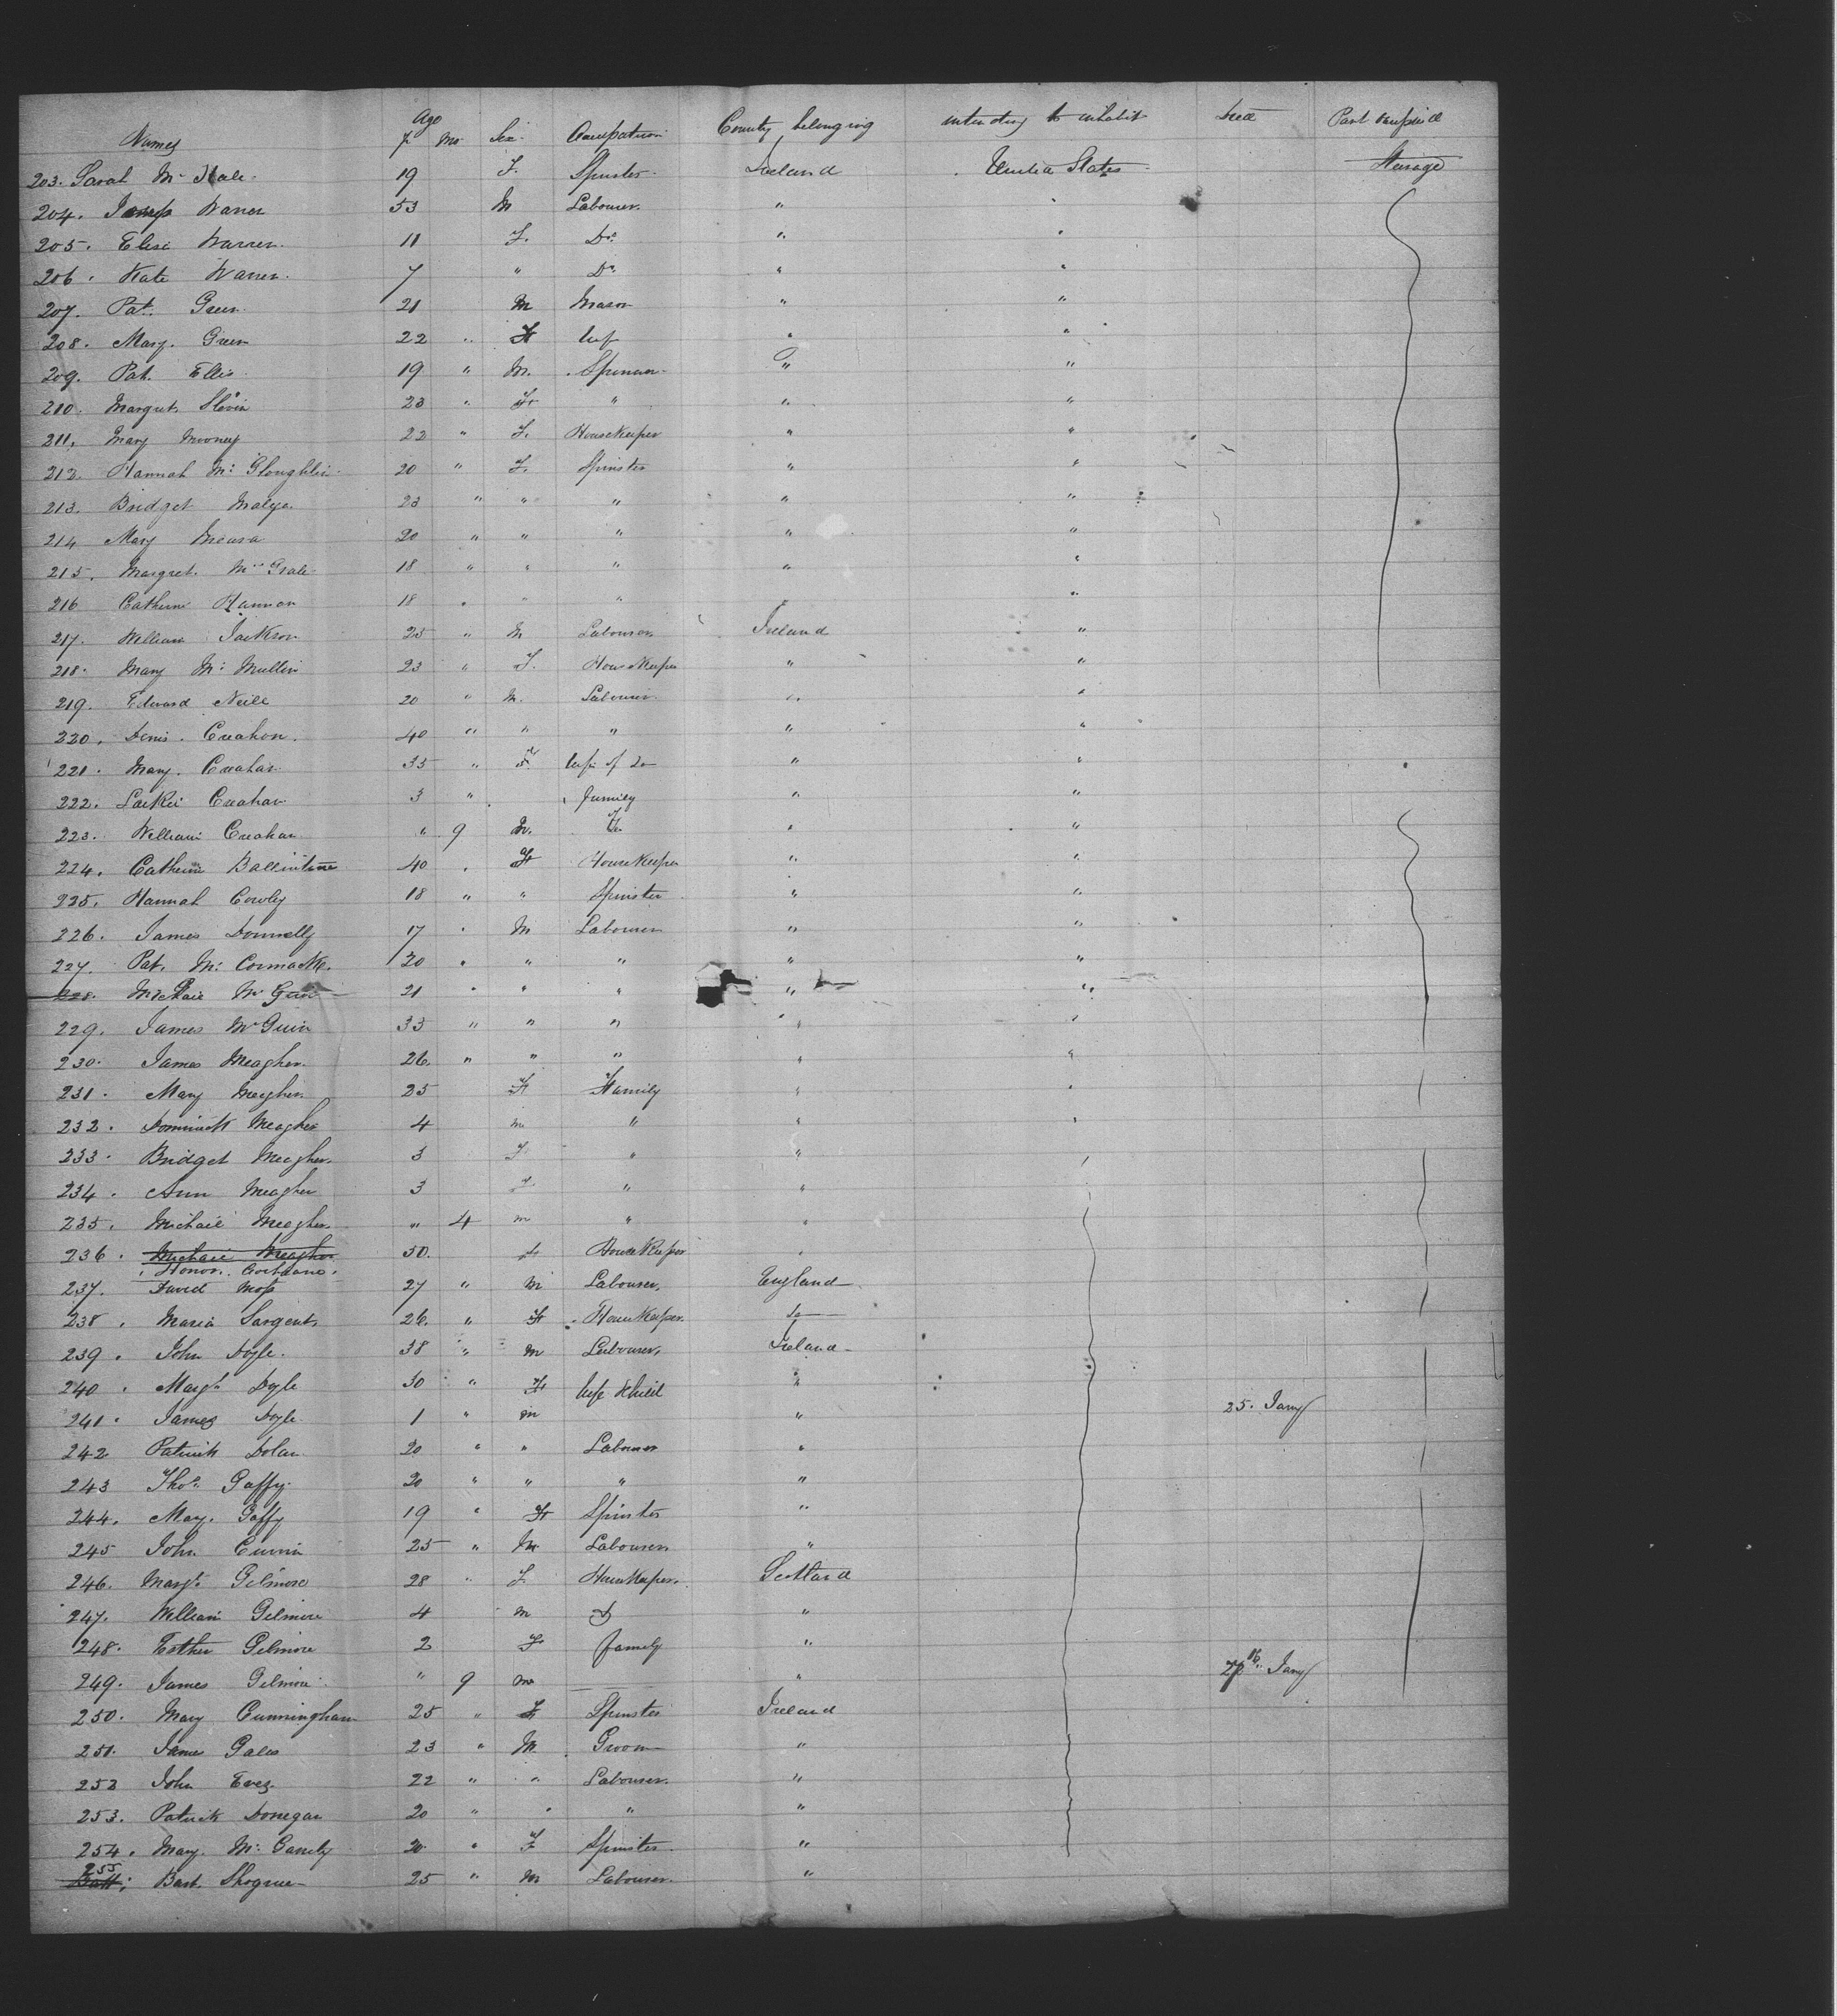 Names Age Y Mo Sex Occupation Country belonging intending to inhabit Died Part occupied
203. Sarah Mc Hale 19 F. Spinster Ireland United States Steerage
204. James Warren 53 M Labourer "  "
205. Elisa Warren 11 F. Do " "
206. Kate Warren 7 " Do " "
207. Pat. Green 21 M Mason " "
208. Mary Green 22 " F wife " "
209. Pat. Ellis 19 " M. " "
210. Margret Slevin 23 " F " " "
211. Mary Mooney 22 " F. Housekeeper " "
212. Hannah Mc Gloughlin 20 " F. Spinster " "
213. Bridget 23 " " " " "
214 Mary 20 " " " " "
215. Margret 18 " " " " "
216 Catherine Hannon 18 " " " " "
217. William Jackson 25 " M Labourer Ireland "
218. Mary Mc Mullin 23 " F. Housekeeper " "
219. Edward Neill 20 " M. Labourer " "
220. Denis Creahon 40 " " " " "
221. Mary Creahan 35 " F. wife of Do " "
222. Creahan 3 " family " "
223. William Creahan " 9 M. " "
224. Catherine Ballintine 40 " F Housekeeper " "
225. Hannah Cowley 18 " " Spinster " "
226. James Donnelly 17 " M Labourer " "
227. Pat. Mc Cormack 20 " " " " "
228. Michael Mc 21 " " " " "
229. James Mc Guin 33 " " " " "
230. James Meagher 26. " " " " "
231. Mary Meagher 25 F Family " "
232. Dominick Meagher 4 m " " "
233. Bridget Meagher 3 F " "
234. Ann Meagher 3 F " "
235. Michael Meagher " 4 m " "
236. Michael Meagher 50. F Housekeeper "
Honor
237. David Moss 27 " M Labourer England
238. Maria Sargent 26. " F Housekeeper Do
239. John Doyle 38 " M Labourer Ireland
240. Margt Doyle 30 " F wife & child "
241. James Doyle 1 " m " 25. Jany
242. Patrick Dolan 20 " " Labourer "
243 Thos. Gaffy 20 " " " "
244. Mary Gaffy 19 " F Spinster "
245 John 25 " M Labourer "
246. Margt Gilmore 28 " F. Housekeeper Scotland
247. William Gilmore 4 m & "
248. Esther Gilmore 2 F family "
249. James Gilmore " 9 m " Jany
250. Mary Cunningham 25 " F Spinster Ireland
251. James Gales 23 " M Groom "
252 John 22 " " Labourer "
253. Patrick Donegan 20 " " " "
254. Mary Mc 20 " F Spinster "
255 Bart. 25 " M Labourer "